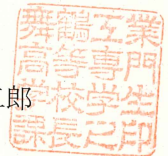 舞鶴工業
高等専門
学校学生
課長之印
郎